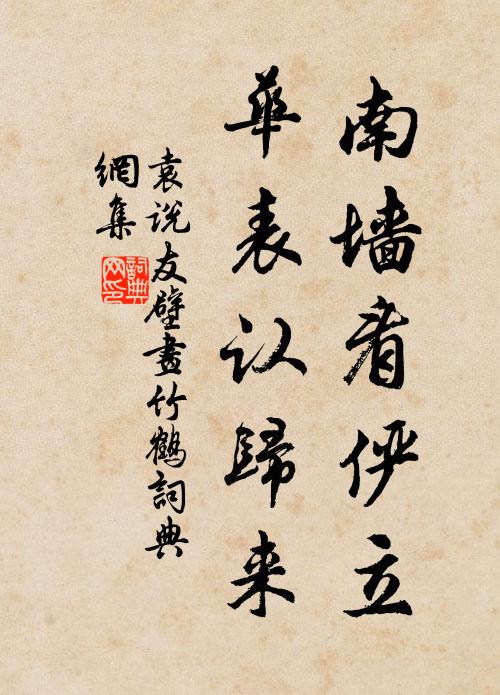 南墙看俨立
華表认歸来
袁说友壁畫竹鶴詞典
網集
詞典網印